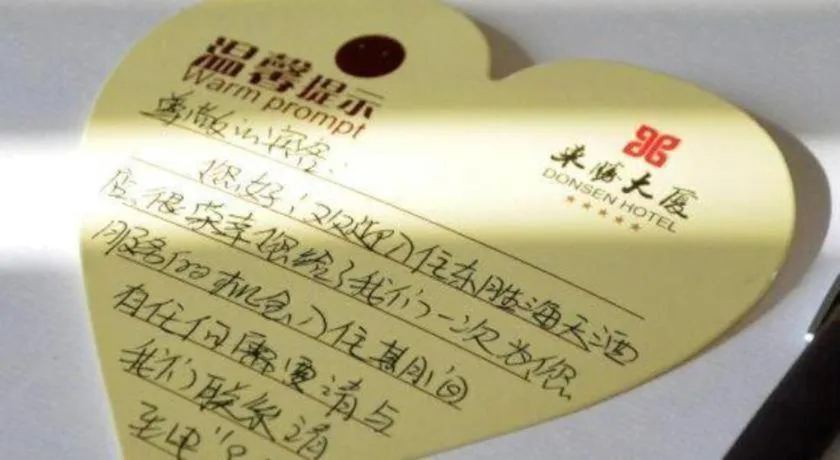 温馨提示
Warm prompt
东胜大厦
DONSEN HOTEL
尊敬的宾客:
您好!欢迎入住东胜海天酒
店,很荣幸您给了我们一次为您
服务的机会,入住期间
有任何需要请与
我们联系请
致电"